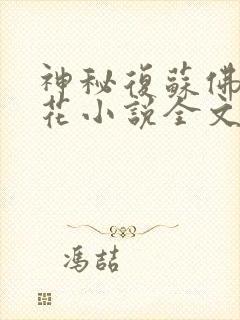 神秘復蘇佛
花小說全文
馮喆